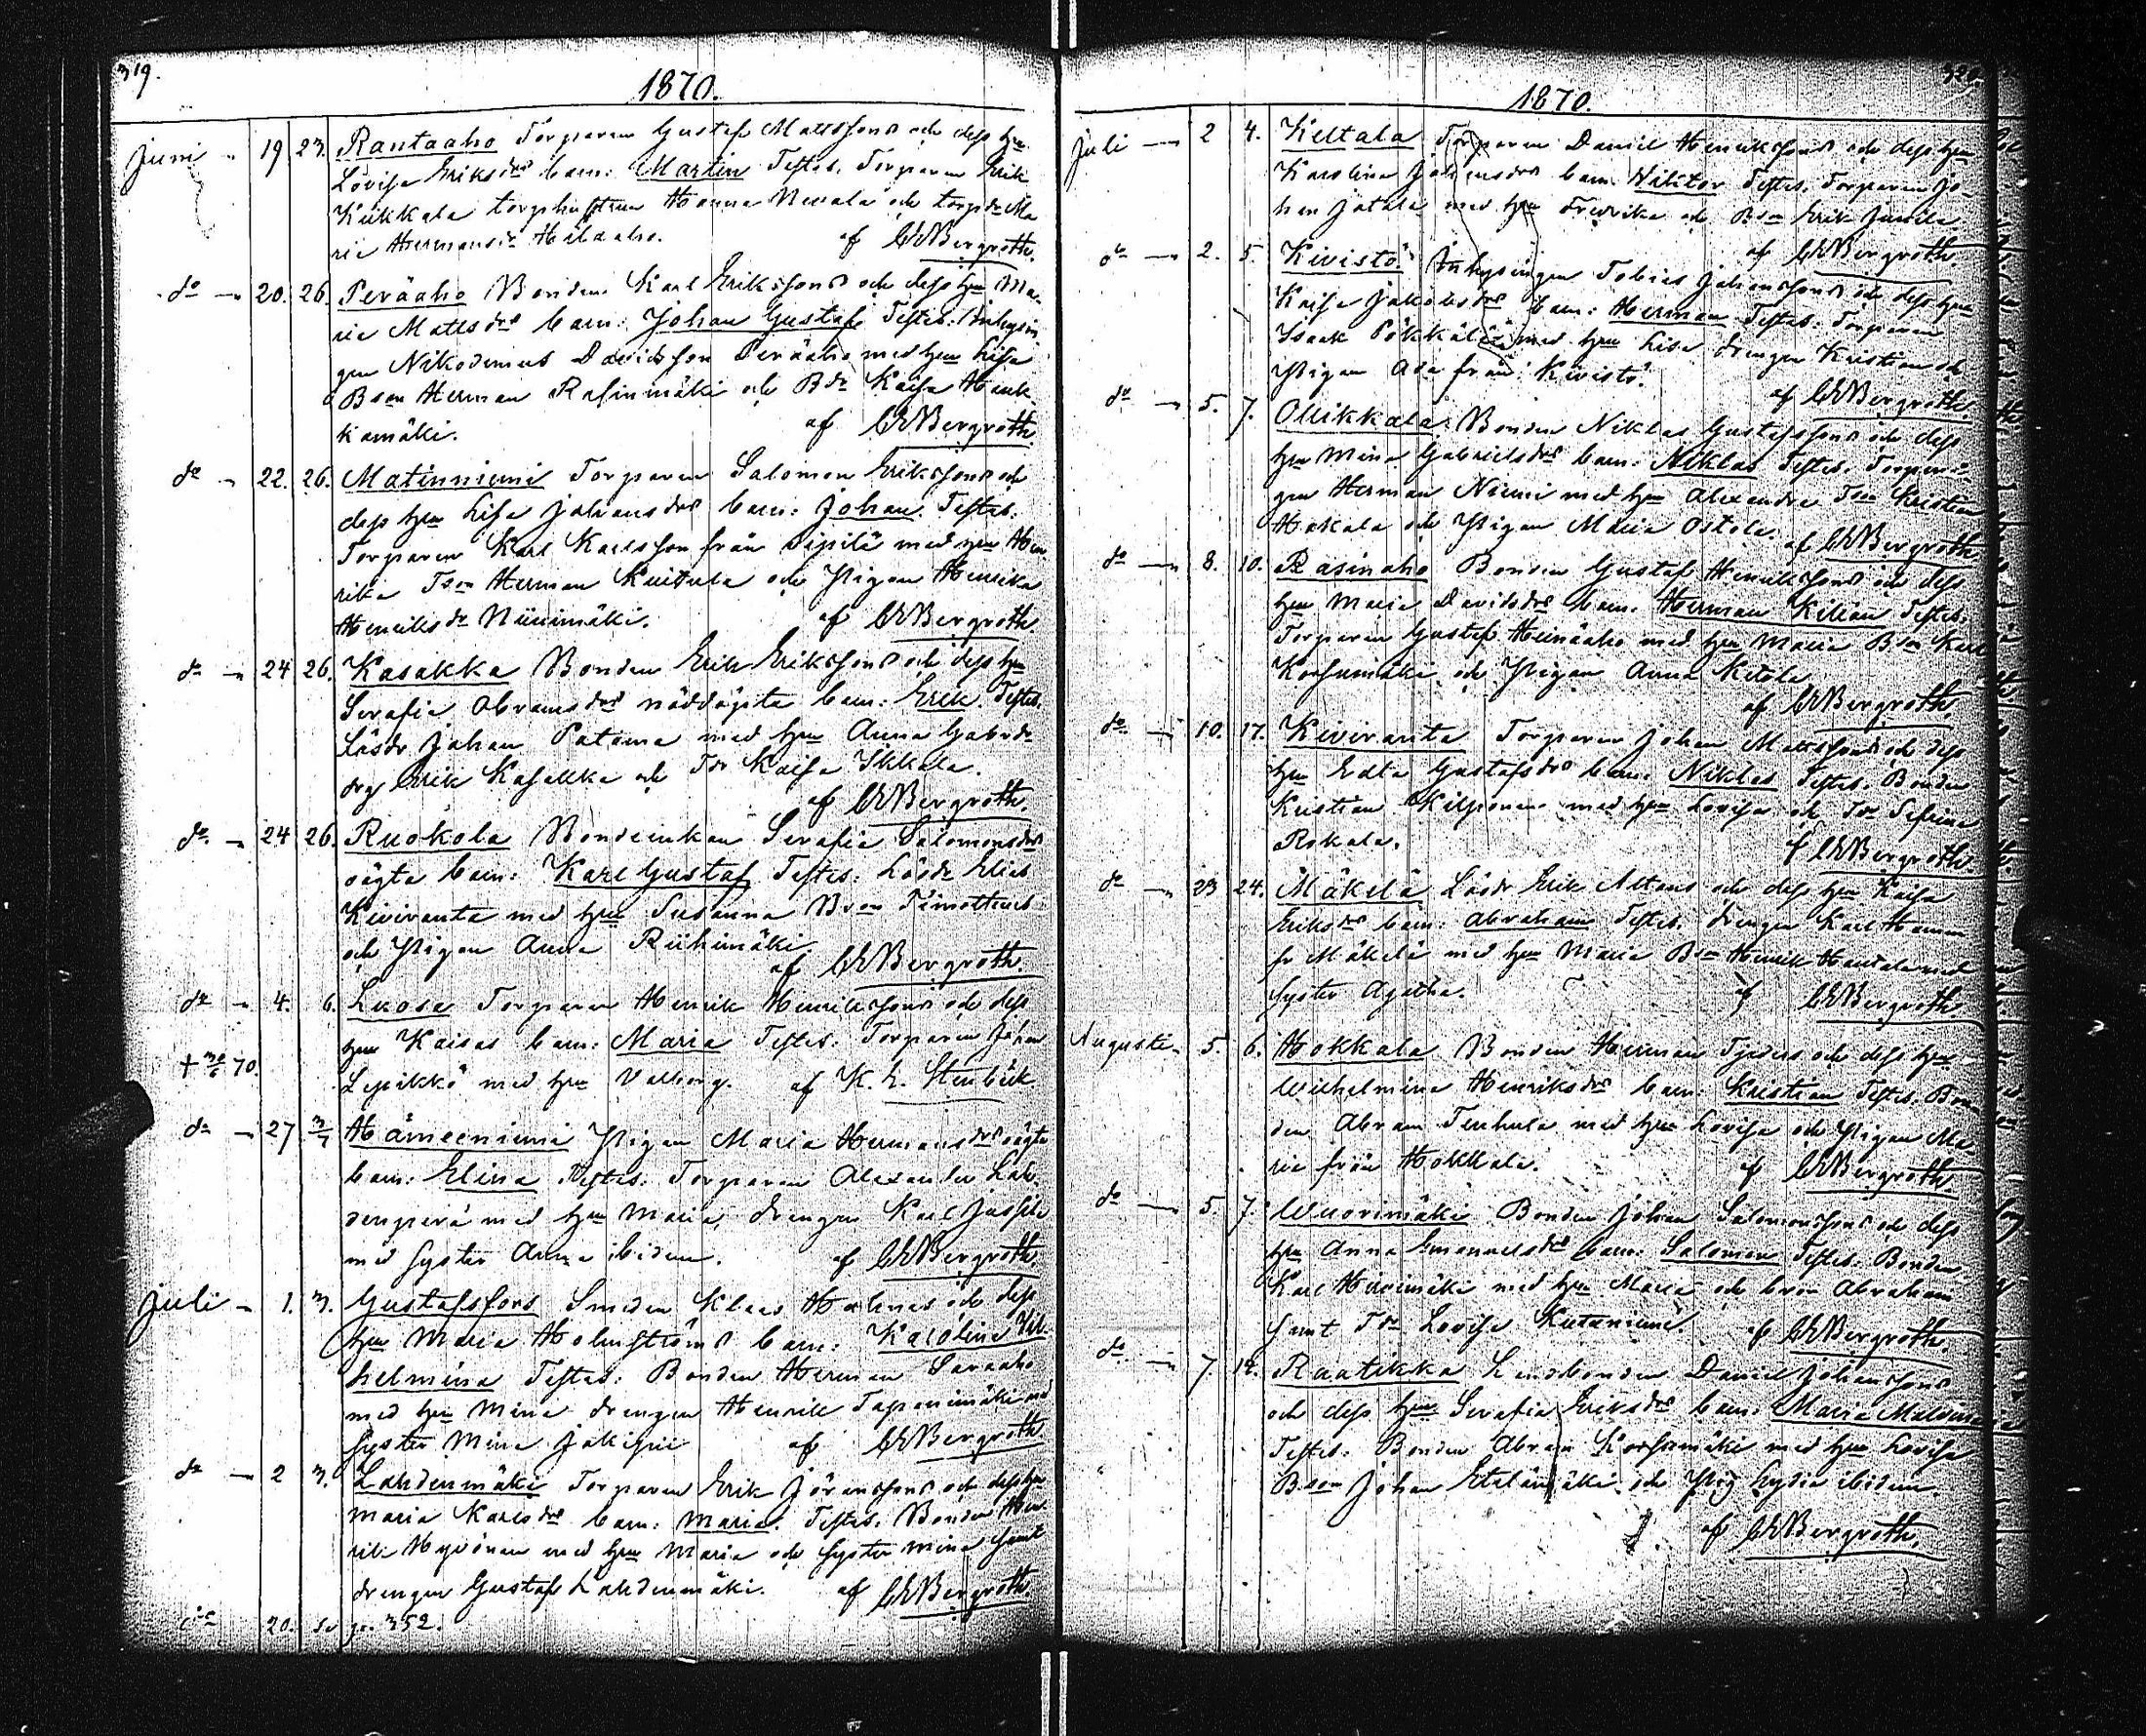 319.
1870.
Juni - 19 23. Rantaaho Torparen Gustaf Mattssons och dess hu
Lovisa Eriksdrs barn: Martin Testes. Torparen Erik
Kiikkala torphustrun Hanna och torpdr Ma
ria Hermansdr
af CEBergroth.
do - 20. 26. Peräaho Bonden Karl Erikssons och dess hu Ma-
ria Mattsdrs barn: Johan Gustaf Testes: Inhysin
gen Nikodemus Davidsson Peräaho med hu Lisa
Bson Herman Rasinmäki och Bdr Kaisa Hauk
kamäki. af CEBergroth.
do - 22. 26. Matinniemi Torparen Salomon Erikssons och
dess hu Lisa Johansdrs barn: Johan. Testes.
Torparen Karl Karlsson från Sipilä med hu Hen
rika Tson Herman Kuitula och Pigan Henrika
Henriksdr Niinimäki. af CEBergroth.
do - 24 26. Kasakka Bonden Erik Erikssons och dess hu
Serafia Abramsdrs nöddöpta barn: Erik. Testes.
Lösdr Johan Patama med hu Anna Gabrdr
drg Erik Kasakka och Tdr Kaisa Ikkala.
af CEBergroth.
do - 24 26. Ruokola Bondeenkan Serafia Salomonsdrs
oägta barn: Karl Gustaf Testes: Lösdr Elias
Kiviranta med hu Susanna Bson Timotheus
och Pigan Anna Riihimäki.
af CEBergroth.
do - 4. 6. Luosa Torparen Henrik Henrikssons och dess
hu Kaisas barn: Maria Testes: Torparen Johan
+ 30/6 70. Lepikkö med hu Valborg. af K. E. Stenbäck
do - 27 3/7 Hämeeniemi Pigan Maria Hermansdrs oägta
barn: Elina Testes: Torparen Alexander Lah-
denperä med hu Maria, drengen Karl Jussila
med syster Anna ibidem. af CEBergroth.
Juli - 1. 3. Gustafsfors Smeden Klaes och dess
hu Maria Holmströms barn: Karolina Vil-
helmina Testes: Bonden Herman Savaaho
med hu Mina drengen Henrik Tapanimäki med
syster Mina af CEBergroth
do - 2 3. Lahdenmäki Torparen Erik Jöranssons och dess hu
Maria Karlsdrs barn: Maria. Testes. Bonden Hen
rik Hyvönen med hu Maria och syster Mina samt
drengen Gustaf Lahdenmäki. af CEBergroth
20. Se pag. 352.
1870.
Juli - 2 4. Keltala Torparen Daniel Henrikssons och dess hu
Karolina Johansdrs barn Wiktor Testes. Torparen Jo-
han Jatala med hu Fredrika och Bson Erik Junila.
af CEBergroth
do - 2. 5. Kivistö: Inhysingen Tobias Johanssons och dess hu
Kaisa Jakobsdrs barn: Herman Testes: Torparen
Isaak med hu Lisa drengen Kristian och
Pigan Ada från Kivistö.
af CEBergroth
do - 5. 7. Ollikkala: Bonden Niklas Gustafssons och dess
hu Mina Gabrielsdrs barn: Niklas Testes.
Herman Niemi med hu Alexandra Tson Kristian
Hakala och Pigan Maria Ostola. af CEBergroth
do - 8. 10. Rasinaho Bonden Gustaf Henrikssons och dess
hu Maria Davidsdrs barn. Herman Kilian Testes:
Torparen Gustaf Heinäaho med hu Maria Bson Karl
Korsumäki och Pigan Anna Ketola
af CEBergroth.
do - 10. 17. Kiviranta Torparen Johan Mattssons och dess
hu Edla Gustafsdrs barn: Niklas Testes: Bonden
Kristian Kilponen med hu Lovisa och Tdr Sefrina
Rokala. af CEBergroth.
do - 23 24. Mäkelä Lösdr Erik Altans och dess hu Kaisa
Eriksdrs barn: Abraham Testes. Drengen Karl
fr Mäkelä med hu Maria Bson Henrik Hautala med
syster Agatha. af CEBergroth
Augusti - 5. 6. Hokkala Bonden Herman och dess hu
Wilhelmina Henriksdrs barn: Kristian Testes. Bon
den Abram Tenhula med hu Lovisa och Pigan Ma
ria från Hokkala. af CEBergroth.
do - 5. 7. Wuorimäki Bonden Johan Salomonssons och dess
hu Anna Emanuelsdrs barn: Salomon Testes: Bonden
Karl Hirvimäki med hu Maria och bror Abraham
samt Tdr Lovisa Kutaniemi. af CEBergroth.
do - 7. 14. Raatikka Landbonden Daniel Johanssons
och dess hu Serafia Eriksdrs barn: Maria Maldvina
Testes: Bonden Abram Korsumäki med hu Lovisa
Bson Johan Etelämäki och Pig Lydia ibidem.
af CEBergroth.